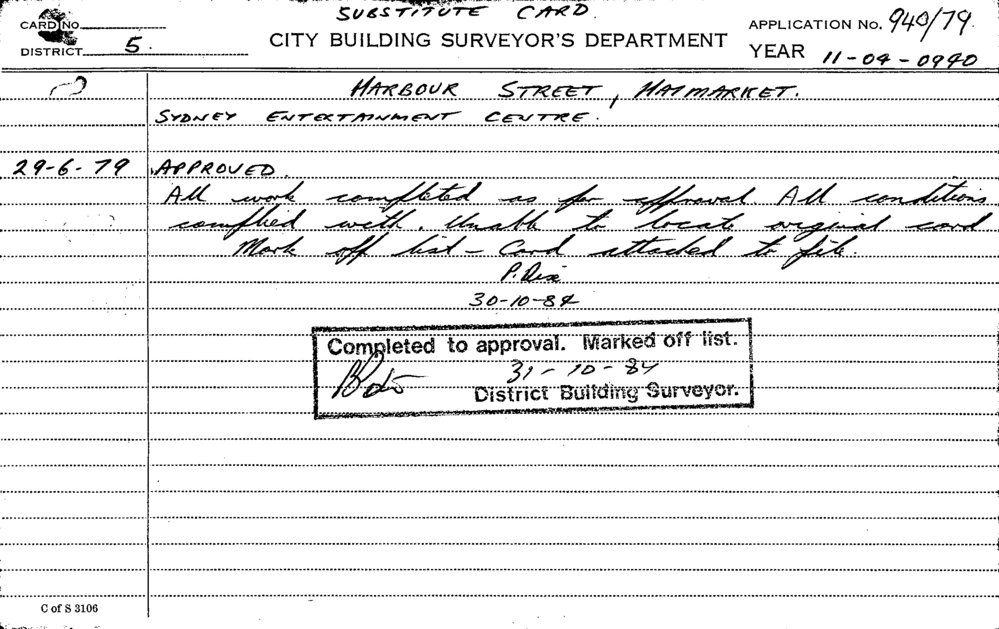 SUBSTITUTE CARD.
CARD NO
DISTRICT 5.
CITY BUILDING SURVEYOR'S DEPARTMENT
APPLICATION No. 940/79.
YEAR 11-04-0940
HARBOUR STREET, HAYMARKET.
SYDNEY ENTERTAINMENT CENTRE.
29-6-79 APPROVED.
All work completed as per approval All conditions
complied with. Unable to locate original card
Mark off list - Card attached to file.
P.
30-10-84
Completed to approval. Marked off list.
31-10-84
District Building Surveyor.
C of S 3106